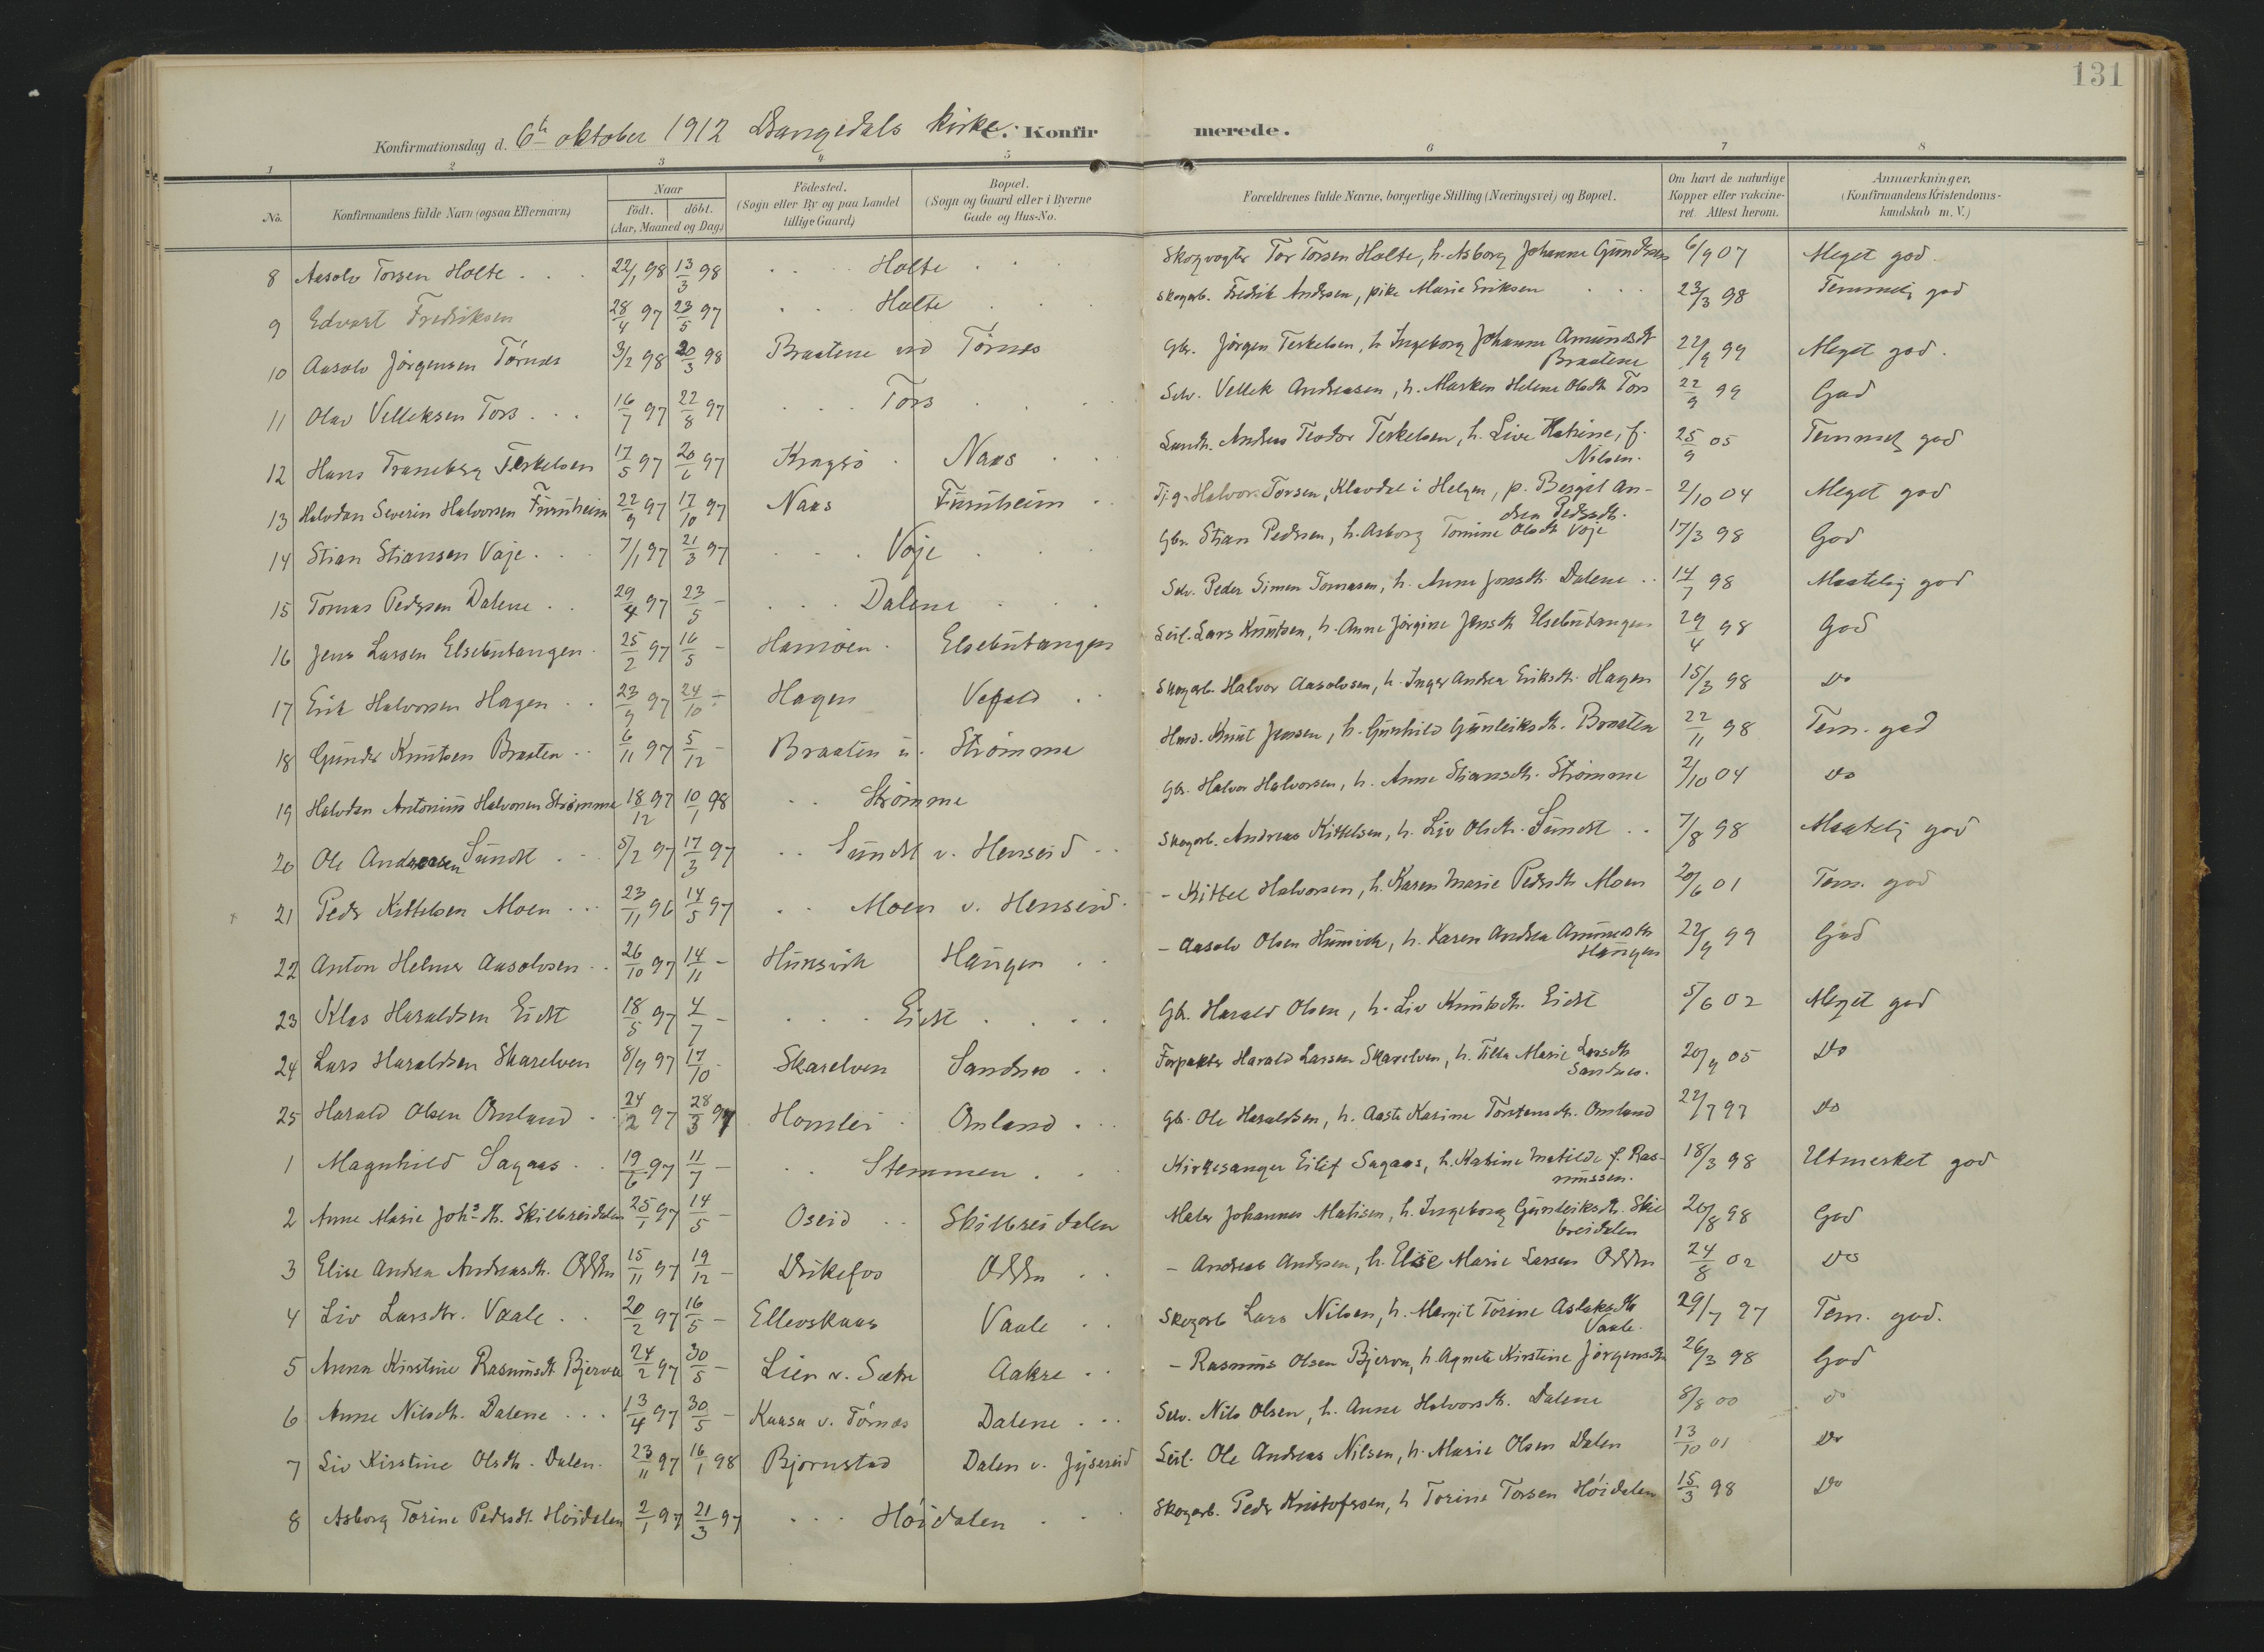 131
Konfirmationsdag d. 6te oktober 1912 Drangedals kirke. C. Konfirmerede.
1 2 3 4 5 6 7 8
No. Konfirmandens fulde Navn (ogsaa Efternavn) Naar født. døbt. (Aar, Maaned og Dag) Fødested. (Sogn eller By og paa Landet tillige Gaard) Bopæl. (Sogn og Gaard eller i Byerne Gade og Hus-No. Forældrenes fulde Navne, borgerlige Stilling (Næringsvei) og Bopæl. Om havt de naturlige Kopper eller vakcineret. Attest herom. Anmærkninger. (Konfirmandens Kristendomskundskab m. V.)
8 Aasolv Torsen Holte . . . 22/1 98 13/3 98 . . . Holte . . . Skogvogter Tor Torsen Holte, h. Asborg Johanne Gundersen 6/9 07 Meget god.
9 Edvart Fredriksen 28/4 97 23/5 97 . . . Holte . . . Skogarb. Fredrik Andersen, pike Marie Eriksen . . . 23/3 98 Temmelig god
10 Aasolv Jörgensen Törnes 3/2 98 20/3 98 Braatene und Törnes Gbr. Jörgen Terkelsen, h Ingeborg Johanne Amundsdt Braatene 22/9 99 Meget god.
11 Olav Velleksen Tors . . . 16/7 97 22/8 97 . . . Tors . . . Selv. Vellek Andreasen, h. Marken Helene Olsdt Tors 22/9 99 God
12 Hans Traneberg Terkelsen 17/5 97 20/6 97 Kragerö . Naas . . . Landh. Andreas Teodor Terkelsen, h. Live Katrine, f. Nilsen. 25/9 05 Temmelig god
13 Halvdan Severin Halvorsen Furuheim 22/9 97 17/10 97 Naas Furuheim . . Tjg. Halvor Torsen, Klovdal i Helgen, p. Bergit Andrea Pedersdt. 2/10 04 Meget god
14 Stian Stiansen Voje . . . 7/1 97 21/3 97 . . . Voje . . . Gbr. Stian Pedersen, h. Asborg Tomine Olsdt Voje 17/3 98 God
15 Tomas Pedersen Dalene . . 29/4 97 23/5 - . . . Dalene . . . Selv. Peder Simen Tomasen, h. Anne Jonsdt. Dalene . . 14/7 98 Maatelig god
16 Jens Larsen Elsebutangen . 25/2 97 16/5 - Hamoen . Elsebutangen Leil. Lars Knutsen, h. Anne Jörgine Jensdt Elsebutangen 29/4 98 God
17 Erik Halvorsen Hagen . . 23/9 97 24/10 - Hagen Vefald . . Skogarb. Halvor Aasolvsen, h. Inger Andrea Eriksdt. Hagen 15/3 98 Do
18 Gunder Knutsen Braaten . . 6/11 97 5/12 - Braaten u. Strømme Husm. Knut Jensen, h. Gunhild Gunleiksdt. Braaten 22/11 98 Tem. god
19 Halvdan Antonius Halvorsen Strømme 18/12 97 10/1 98 . . Strømme Gbr. Halvor Halvorsen, h. Anne Stiansdt. Strømme 2/10 04 do
20 Ole Andreasen Sundet . . . 5/2 97 17/3 97 . . Sundet v. Henseid . . Skogarb. Andreas Kittelsen, h. Liv Olsdt. Sundet . . 7/8 98 Maatelig god
21 Peder Kittelsen Moen . . . 23/11 96 14/5 97 . . Moen v. Henseid . - Kittel Halvorsen, h. Karen Marie Pedersdt Moen 20/6 01 Tem. god
22 Anton Helmer Aasolvsen . . 26/10 97 14/11 - Hunsvik Haugen . . - Aasolv Olsen Hunsvik, h. Karen Andrea Amundsdt Haugen 22/9 99 God
23 Klas Haraldsen Eidet 18/5 97 4/7 - . . . Eidet . . . . Gb. Harald Olsen, h. Liv Knutsdt. Eidet 5/6 02 Meget god
24 Lars Haraldsen Skarelven 8/9 97 17/10 - Skarelven Sandnes . . Forpakter Harald Larsen Skarelven, h. Tilla Marie Larsdt Sandnes. 20/9 05 Do
25 Harald Olsen Omland . . 24/2 97 28/3 97 Homlei . Omland . . . Gb. Ole Haraldsen, h. Aaste Karine Torstensdt. Omland 22/7 97 do
1 Magnhild Sagaas . . 19/6 97 11/7 - . . Stemmen . . Kirkesanger Eilef Sagaas, h. Katrine Matilde f. Rasmussen. 18/3 98 Utmerket god
2 Anne Marie Johsdt. Skibreidalen 25/1 97 14/5 - Oseid . . Skibreidalen Maler Johannes Matisen, h. Ingeborg Gunleiksdt. Skibreidalen 20/8 98 God
3 Elise Andrea Andreasdt. Odden 15/11 97 19/12 - Drikefos Odden . . - Andreas Andersen, h. Elise Marie Larsen Odden 24/8 02 Do
4 Liv Larsdtr. Vaale . . 20/2 97 16/5 - Ellevskaas Vaale . . Skogarb Lars Nilsen, h. Mergit Torine Aslaksdt Vaale. 29/7 97 Tem. god.
5 Anna Kirstine Rasmusdt Bjerva 24/2 97 30/5 - Lien v. Sætre Aakre . . - Rasmus Olsen Bjerva, h. Agnete Kirstine Jörgensdt 26/3 98 God
6 Anne Nilsdt. Dalene . . . 13/4 97 30/5 - Kaasa v. Törnes Dalene . . . Selv. Nils Olsen, h. Anne Halvorsdt. Dalene 8/8 00 do
7 Liv Kirstine Olsdt. Dalen . 23/11 97 16/1 98 Bjornstad Dalen v. Jysereid Leil. Ole Andreas Nilsen, h. Marie Olsen Dalen 13/10 01 Do
8 Asborg Torine Pedersdt. Höidalen 2/1 97 21/3 97 . . . Höidalen . . . Skogarb. Peder Kristofersen, h Torine Torsen Höidalen 15/3 98 Do